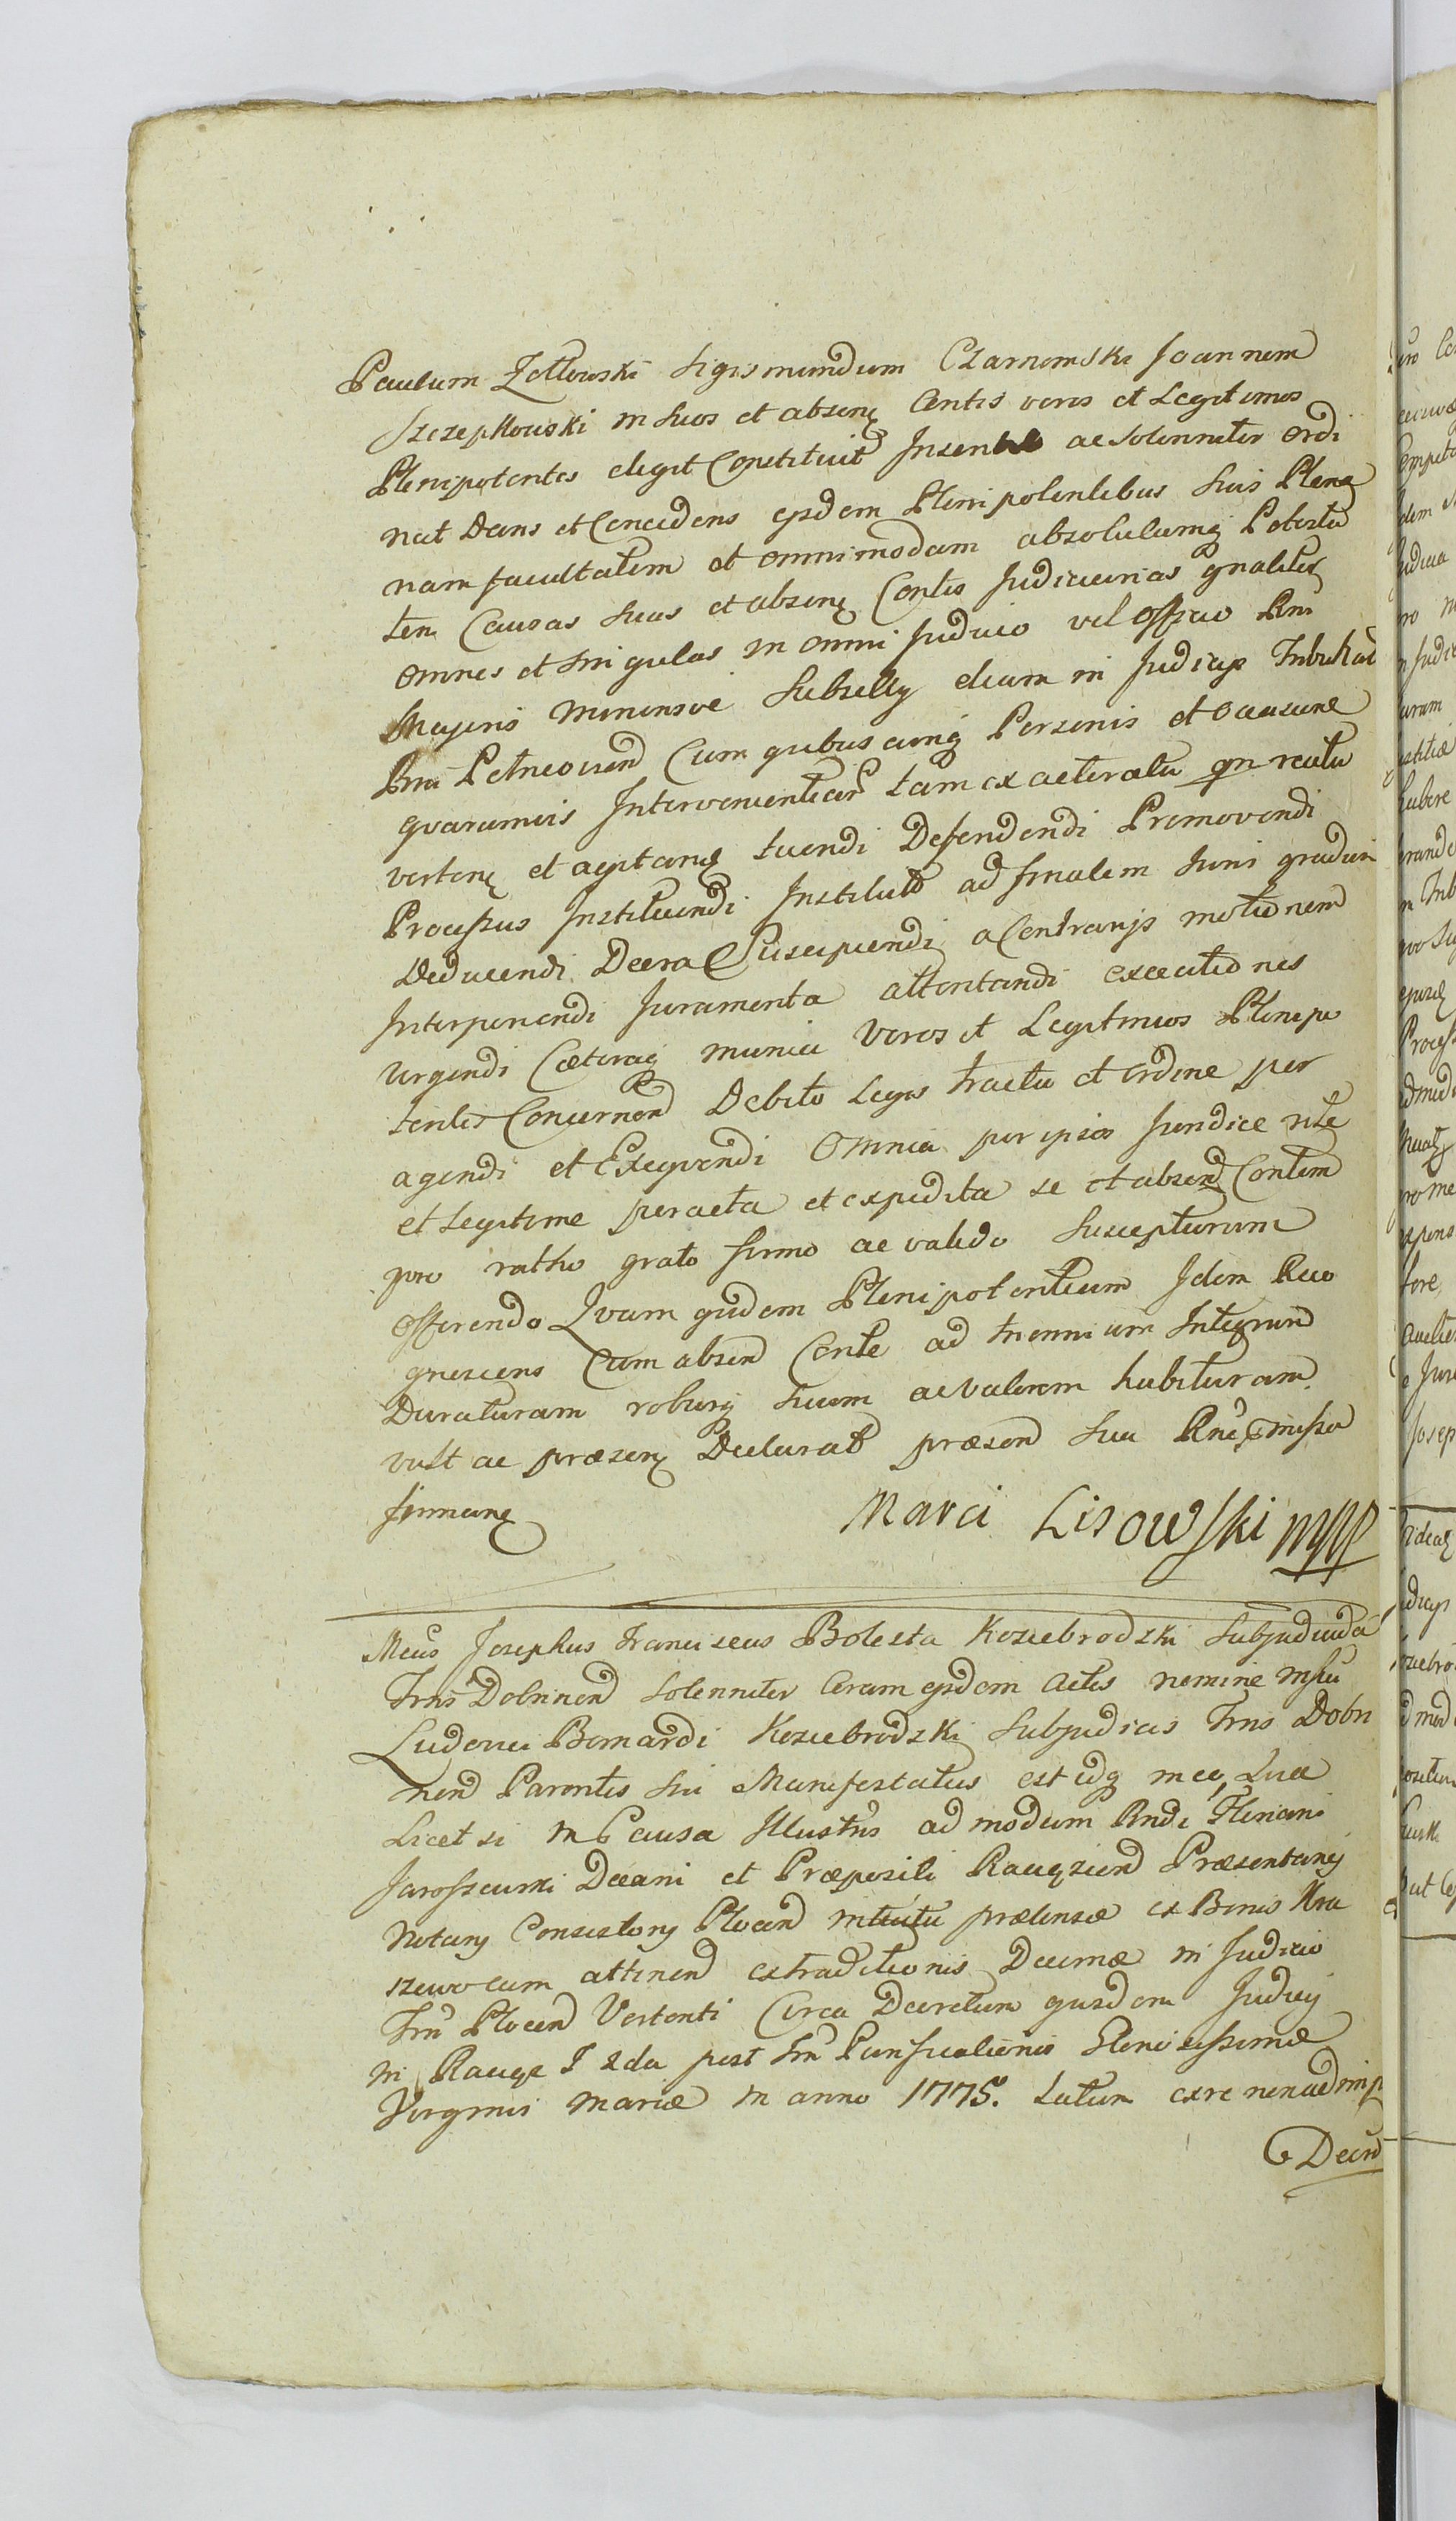 Paulum Zołtowski Sigismundum Czarnomski Joannem
Szczepkowski in Suos et absenꝫ Contis veros et Legitimos
Plenipotentes elegit Constituit Insen ac Solenniter Ordi
nat Dans et Concedens ejsdem Plenipotentibus Suis Plena
nam facultatem et omnimodam absolutamqꝫ Potesta
tem Causas Suas et absenꝫ Contis Judiciarias gnaliter
omnes et Singulas in omni Judicio vel Officio Rni
Majoris Minorisve Subsellij etiam in Judicijs Tribuńal
Rni Petricovien Cum quibuscunqꝫ Personis et occasione
qvarumvis Interveniention tam ex actoratu qm reatu
vertenꝫ et agitanꝫ tuendi Defendendi Promovendi
Processus Instituendi Institut ad finalem Juris gradum
Deducendi Decreta Suscipiendi a Contrarijs motionem
Interponendi Juramenta attentandi executiones
urgendi Cæteraqꝫ munia Veros et Legitimos Plenipo
tentes Concernen Debito Legis tractu et ordine per
agendi et Exeqvendi Omnia per ipsos juridice rite
et Legitime peracta et expedita se et absen Contem
pro ratho grato firmo ac valido Suscepturum
offerendo Qvam quidem Plenipotentiam Idem Reco
gnoscens Cum absen Conte ad triennium Integrum
Duraturam roburqꝫ Suum ac valorem habituram
vult ac præsenꝫ Declarat præsen Sua Rne missa
firmanꝫ
Marci Lisowski mpp
Mcus Josephus Franciscus Bolesta Koziebrodzki Subjudicida
Trrs Dobrinen Solenniter Coram ejsdem Actis nomine Msci
Ludovici Bernardi Koziebrodzki Subjudicis Trrs Dobri
nen Parentis Sui Manifestatus est idqꝫ in eo, Qua
Licet si in Causa Illustris admodum Rndi Floriani
Jaroszewski Decani et Præpositi Raciązien Præsentanꝫ
Notarij Consistorij Plocen intuitu prætensæ ex Bonis Kra
szewo cum attinen extraditionis Decimæ in Judicio
Trrī Plocen Vertenti Circa Decretum ejusdem Judicij
in Raciąż F 2da post Fm Purificationis Gloriosissimæ
Virginis Mariæ in anno 1775. Latum ex re non adimp
Decrō